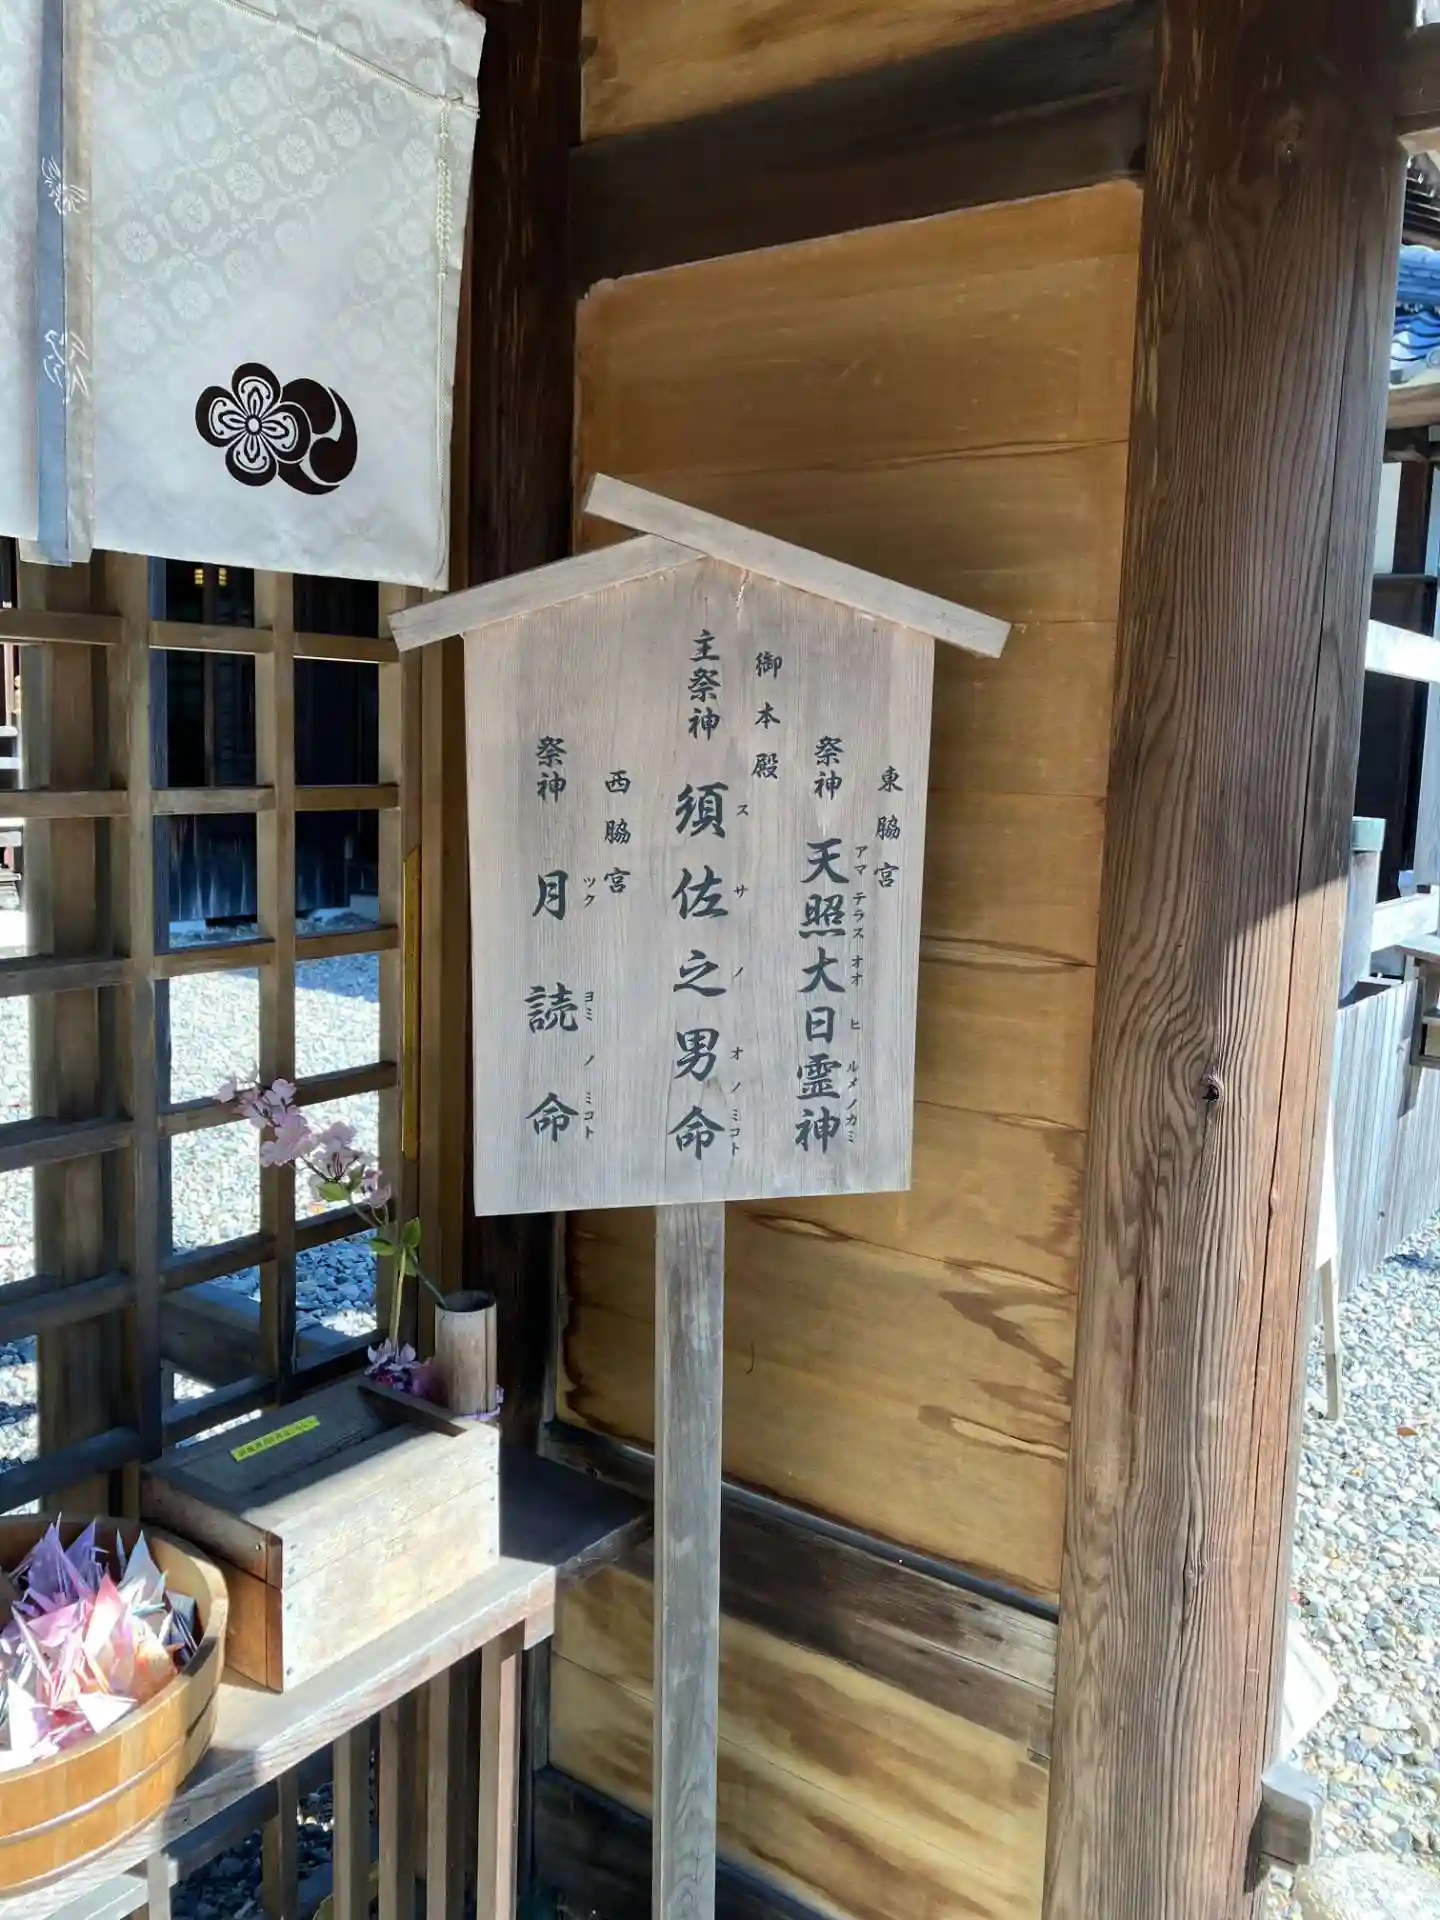 東脇宮
祭神 天照大日霊神
アマテラスオオヒルメノカミ
御本殿
主祭神 須佐之男命
スサノオノミコト
西脇宮
祭神 月読命
ツクヨミノミコト